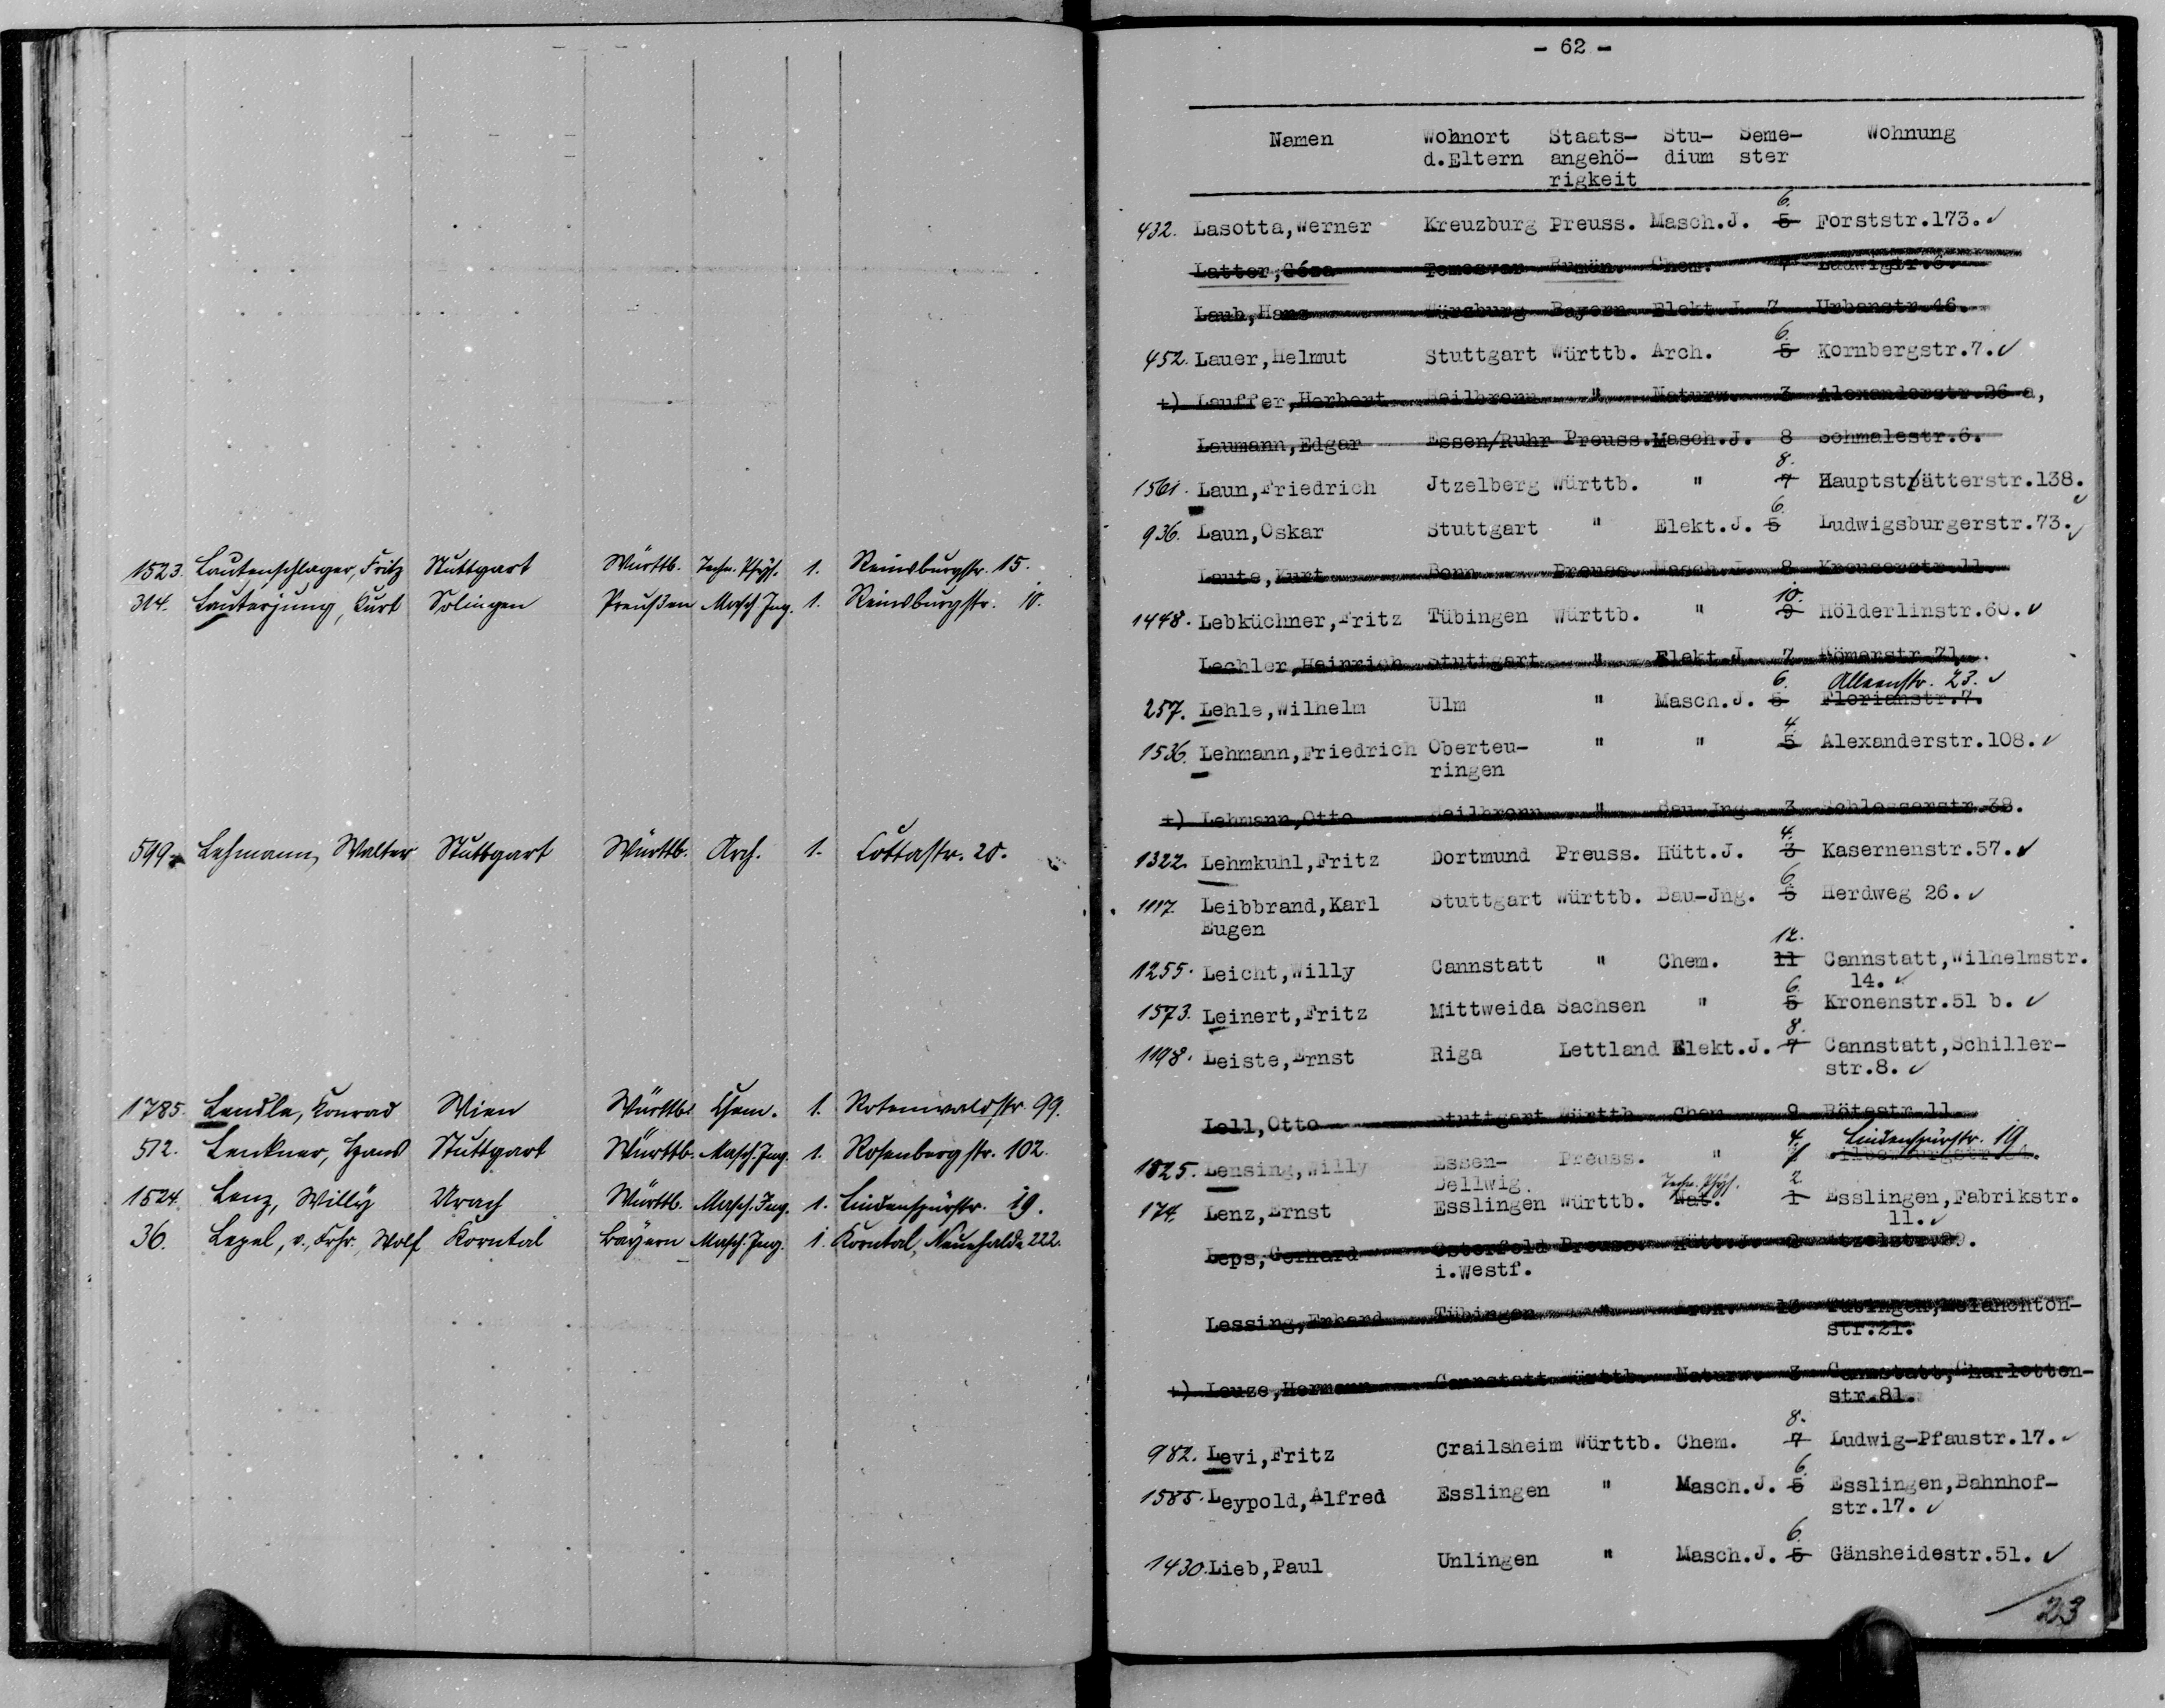 1523. Lautenschlager, Fritz Stuttgart Württb. Techn. Phys. 1. Reinsburgstr. 15.
314. Lauterjung, Kurt Solingen Preußen Masch. Ing. 1. Reinsburgstr. 10.
599. Lehmann, Walter Stuttgart Württb. Arch. 1. Cottastr. 20.
1785. Lendle, Konrad Wien Württb. Chem. 1. Rotenwaldstr. 99.
512. Lenkner, Hans Stuttgart Württb. Masch. Ing. 1. Rosenbergstr. 102.
1524. Lenz, Willy Urach Württb. Masch. Ing. 1. Lindenspürstr. 19.
36. Lepel, v., Frhr. Wolf Korntal Bayern Masch. Ing. 1. Korntal, Neuhalde 222.
- 62 -
Namen Wohnort Staats- Stu- Seme- Wohnung
d.Eltern angehö- dium ster
rigkeit
6.
432. Lasotta,Werner Kreuzburg Preuss. Masch.J. 5 Forststr.173. ✓
Latter,Géza Temesvar Rumän. Chem. 7 Ludwigstr.6.
Laub,Hans Würzburg Bayern Elekt.J. 7 Urbanstr.46.
6.
452. Lauer,Helmut Stuttgart Württb. Arch. 5 Kornbergstr.7. ✓
+) Lauffer,Herbert Heilbronn " Naturw. 3 Alexanderstr.26 a,
Laumann,Edgar Essen/Ruhr Preuss.Masch.J. 8 Schmalestr.6.
8.
1561. Laun,Friedrich Jtzelberg Württb. " 7 Hauptstätterstr.138. ✓
6.
936. Laun,Oskar Stuttgart " Elekt.J. 5 Ludwigsburgerstr.73. ✓
Laute,Kurt Bonn Preuss. Masch.J. 8 Kreuserstr.11.
10.
1448. Lebküchner,Fritz Tübingen Württb. " 9 Hölderlinstr.60. ✓
Lechler,Heinrich Stuttgart " Elekt.J. 7 Römerstr.71.
6. Alleenstr. 23. ✓
257. Lehle,Wilhelm Ulm " Masch.J. 5 Florianstr.7.
4.
1536. Lehmann,Friedrich Oberteu- " " 5 Alexanderstr.108. ✓
ringen
+) Lehmann,Otto Heilbronn " Bau-Jng. 3 Schlosserstr.38.
4.
1322. Lehmkuhl,Fritz Dortmund Preuss. Hütt.J. 3 Kasernenstr.57. ✓
6.
1117. Leibbrand,Karl Stuttgart Württb. Bau-Jng. 5 Herdweg 26. ✓
Eugen
12.
1255. Leicht,Willy Cannstatt " Chem. 11 Cannstatt,Wilhelmstr.
14. ✓
6.
1573. Leinert,Fritz Mittweida Sachsen " 5 Kronenstr.51 b. ✓
8.
1198. Leiste,Ernst Riga Lettland Elekt.J. 7 Cannstatt,Schiller-
str.8. ✓
Lell,Otto Stuttgart Württb. Chem. 9 Rötestr.11.
4. Lindenspürstr. 19.
1825. Lensing,Willy Essen- Preuss. "
Dellwig.
Techn. Phys. 2.
174. Lenz,Ernst Esslingen Württb. Nat. 1 Esslingen,Fabrikstr.
11. ✓
Leps,Gerhard Osterfeld Preuss. Hütt.J. Atzelstr.
i.Westf.
Lessing,Erhard Tübingen " Arch. 13 Tübingen,Melanchton-
str.21.
+) Leuze,Hermann Cannstatt Württb. Naturw. 3 Cannstatt,Charlotten-
str.81.
8.
982. Levi,Fritz Crailsheim Württb. Chem. 7 Ludwig-Pfaustr.17. ✓
6.
1585. Leypold,Alfred Esslingen " Masch.J. 5 Esslingen,Bahnhof-
str.17. ✓
6.
1430. Lieb,Paul Unlingen " Masch.J. 5 Gänsheidestr.51. ✓
23